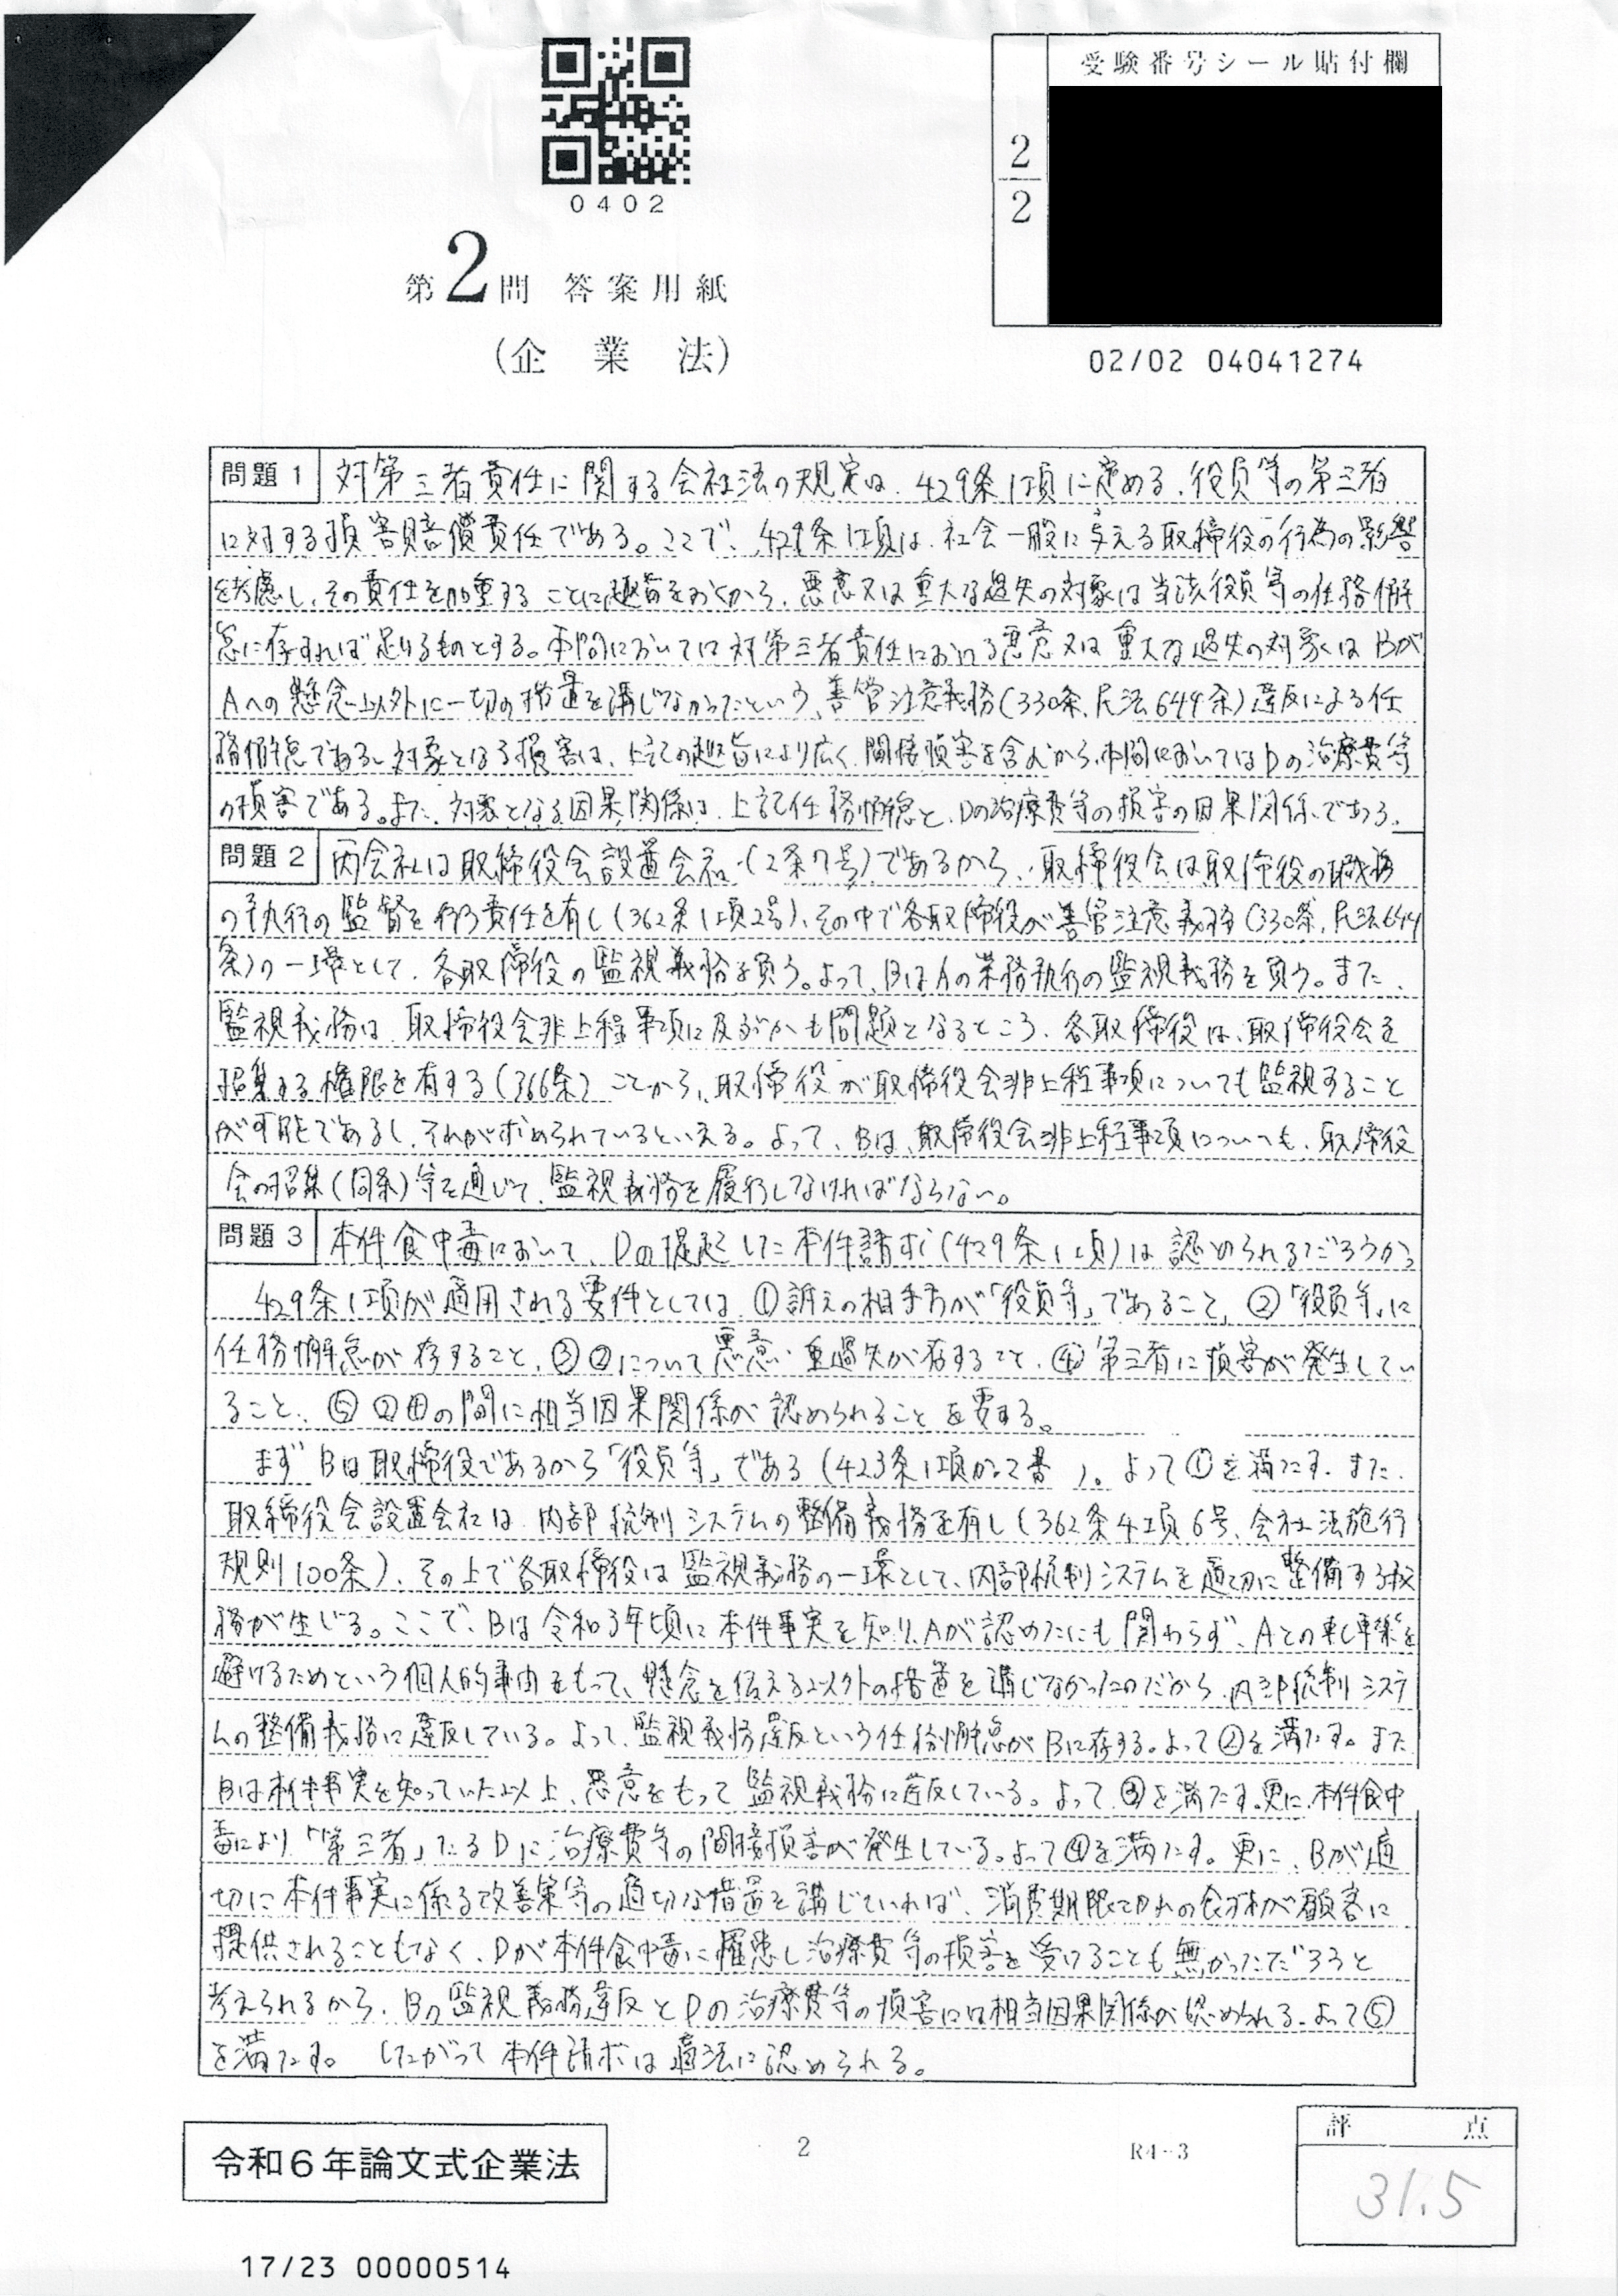 受験番号シール貼付欄
2
2
0402
第2問 答案用紙
(企業法)
02/02 04041274
問題1 対第三者責任に関する会社法の規定は、429条1項に定める、役員等の第三者
に対する損害賠償責任である。ここで、429条1項は、社会一般に与える取締役の行為の影響
を考慮し、その責任を加重することに趣旨をおくから、悪意又は重大な過失の対象は当該役員等の任務懈
怠に存すれば足りるものとする。本問においては対第三者責任における悪意又は重大な過失の対象はBが
Aへの懸念以外に一切の措置を講じなかったという、善管注意義務(330条、民法644条)違反による任
務懈怠である。対象となる損害は、上記の趣旨により広く、間接損害を含むから、本問においてはDの治療費等
の損害である。また、対象となる因果関係は、上記任務懈怠と、Dの治療費等の損害の因果関係である。
問題2 丙会社は取締役会設置会社(2条7号)であるから、取締役会は取締役の職務
の執行の監督を行う責任を有し(362条1項2号)、その中で各取締役が善管注意義務(330条、民法644
条)の一環として、各取締役の監視義務を負う。よって、BはAの業務執行の監視義務を負う。また、
監視義務は、取締役会非上程事項に及ぶかも問題となるところ、各取締役は、取締役会を
招集する権限を有する(366条)ことから、取締役が取締役会非上程事項についても監視すること
が可能であるし、それが求められているといえる。よって、Bは、取締役会非上程事項についても、取締役
会の招集(同条)等を通じて、監視義務を履行しなければならない。
問題3 本件食中毒において、Dの提起した本件請求(429条1項)は認められるだろうか。
429条1項が適用される要件としては、①訴えの相手方が「役員等」であること、②「役員等」に
任務懈怠が存すること、③②について悪意・重過失が存すること、④第三者に損害が発生してい
ること、⑤②④の間に相当因果関係が認められることを要する。
まずBは取締役であるから「役員等」である(423条1項かっこ書)。よって①を満たす。また、
取締役会設置会社は、内部統制システムの整備義務を有し(362条4項6号、会社法施行
規則100条)、その上で各取締役は監視義務の一環として、内部統制システムを適切に整備する義
務が生じる。ここで、Bは令和3年頃に本件事実を知り、Aが認めたにも関わらず、Aとの軋轢を
避けるためという個人的事由をもって、懸念を伝える以外の措置を講じなかったのだから、内部統制システ
ムの整備義務に違反している。よって、監視義務違反という任務懈怠がBに存する。よって②を満たす。また
Bは本件事実を知っていた以上、悪意をもって監視義務に違反している。よって③を満たす。更に、本件食中
毒により「第三者」たるDに治療費等の間接損害が発生している。よって④を満たす。更に、Bが適
切に本件事実に係る改善策等の適切な措置を講じていれば、消費期限切れの食材が顧客に
提供されることもなく、Dが本件食中毒に罹患し治療費等の損害を受けることも無かっただろうと
考えられるから、Bの監視義務違反とDの治療費等の損害には相当因果関係が認められる。よって⑤
を満たす。したがって本件請求は適法に認められる。
令和6年論文式企業法
2
R4-3
評点
31.5
17/23 00000514